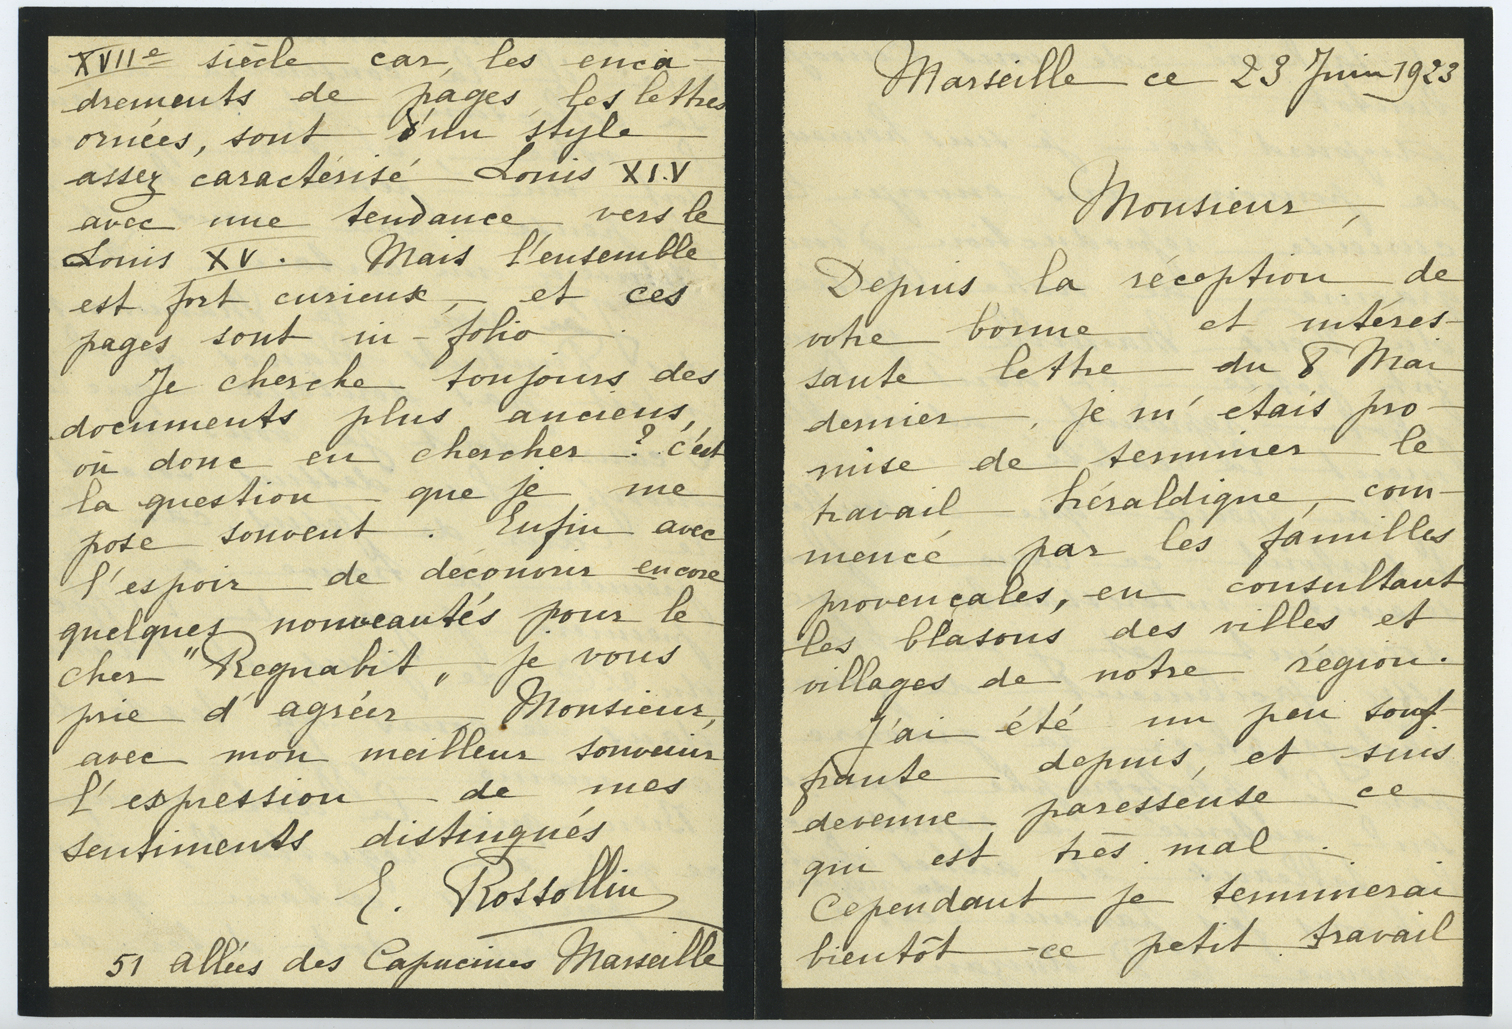 Marseille ce 23 Juin 1923
Monsieur,
Depuis la réception de
votre bonne et intéres-
sante lettre du 8 Mai
dernier, je m'étais pro-
mise de terminer le
travail héraldique, com-
mencé par les familles
provençales, en consultant
les blasons des villes et
villages de notre région.
J'ai été un peu souf-
frante depuis, et suis
devenue paresseuse ce
qui est très mal.
Cependant je terminerai
bientôt ce petit travail
XVIIe siècle car, les enca-
drements de pages, les lettres
ornées, sont d'un style
assez caractérisé Louis XIV
avec une tendance vers le
Louis XV. Mais l'ensemble
est fort curieux, et ces
pages sont in-folio.
Je cherche toujours des
documents plus anciens,
où donc en chercher ? c'est
la question que je me
pose souvent. Enfin avec
l'espoir de découvrir encore
quelques nouveautés pour le
cher "Regnabit" je vous
prie d'agréer Monsieur,
avec mon meilleur souvenir
l'expression de mes
sentiments distingués
E. Rossollin
51 allées des Capucines Marseille